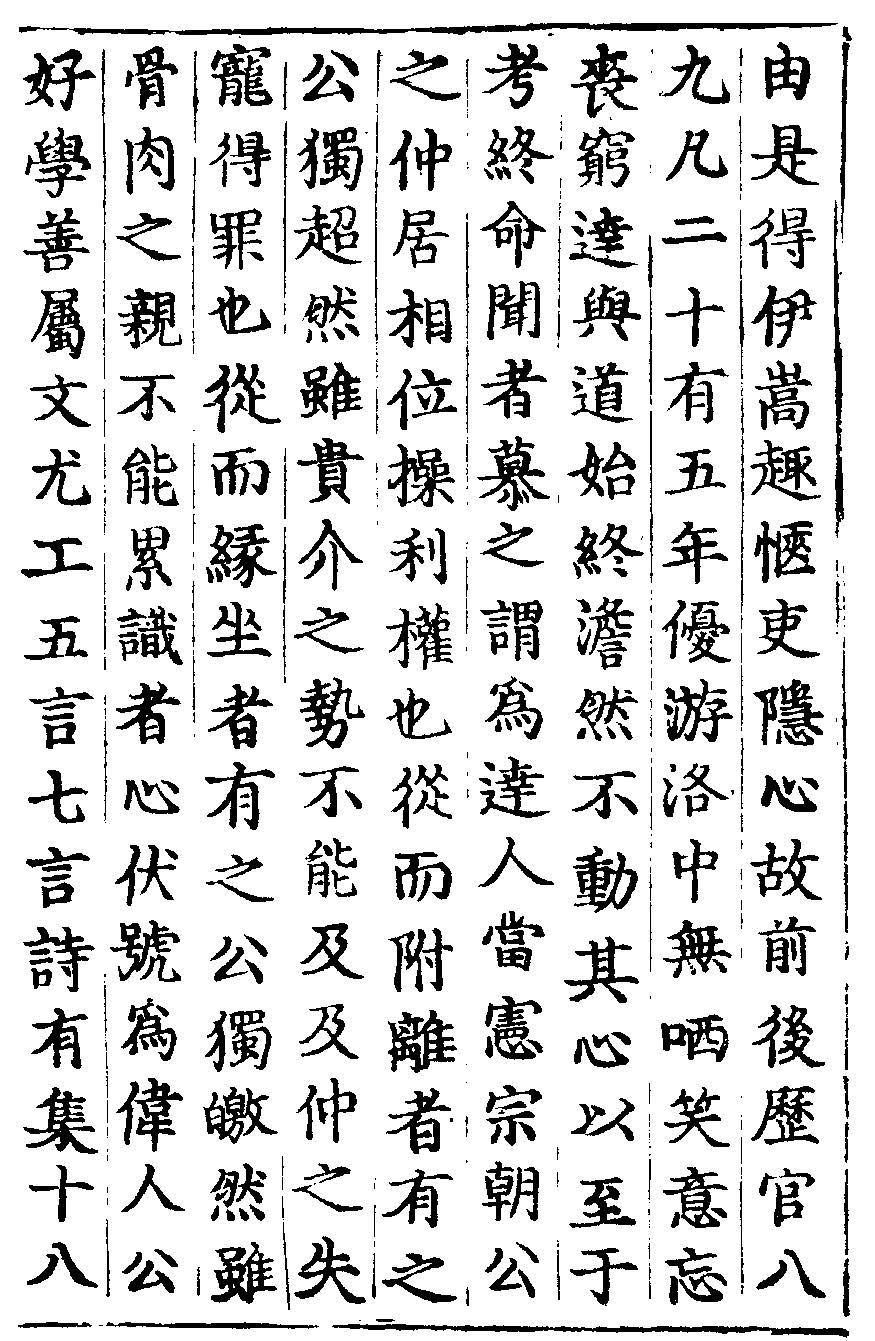 由是得伊嵩趣愜吏隱心故前後歷官八
九凡二十有五年優游洛中無哂笑意忘
喪窮達與道始終澹然不動其心以至于
考終命聞者慕之謂為達人當憲宗朝公
之仲居相位操利權也從而附離者有之
公獨超然雖貴介之勢不能及及仲之失
寵得罪也從而緣坐者有之公獨皦然雖
骨肉之親不能累識者心伏號為偉人公
好學善屬文尤工五言七言詩有集十八